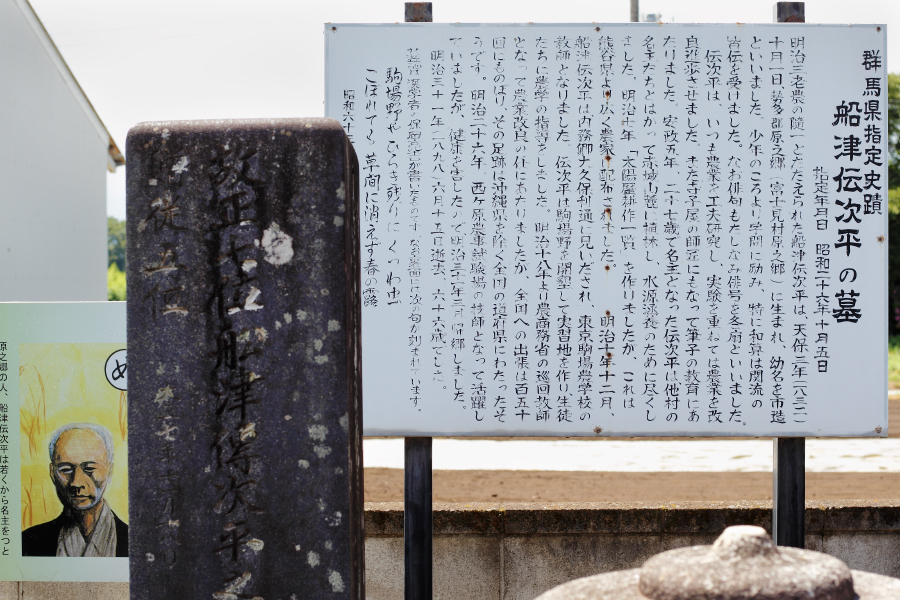 群馬県指定史蹟
船津伝次平の墓
指定年月日 昭和二十六年十月五日
明治三老農の随一とたたえられた船津伝次平は、天保三年(一八三二)
十月一日勢多郡原之郷(富士見村原之郷)に生まれ、幼名を市造
といいました。少年のころより学問に励み、特に和算は関流の
皆伝を受けました。なお俳句もたしなみ俳号を冬扇といいました。
伝次平は、いつも農業を工夫研究し、実験を重ねては農業を改
良進歩させました。また寺子屋の師匠にもなって筆子の教育にあ
たりました。安政五年、二十七歳で名主となった伝次平は他村の
名主たちとはかって赤城山麓に植林し、水源涵養のために尽くし
ました。明治六年「太陽暦耕作一覧」を作りましたが、これは
熊谷県より広く農家に配布されました。明治十年十二月、
船津伝次平は内務卿大久保利通に見いだされ、東京駒場農学校の
教師となりました。伝次平は駒場野を開墾して実習地を作り生徒
たちに農学の指導をしました。明治十八年より農商務省の巡回教師
となって農業改良の任にあたりましたが、全国への出張は百五十
回にものぼり、その足跡は沖縄県を除く全国の道府県にわたったそ
うです。明治二十六年、西ヶ原農事試験場の技師となって活躍し
ていましたが、健康を害したので明治三十一年三月帰郷しました。
明治三十一年(一八九八)六月十五日逝去、六十六歳でした。
次の句が刻まれています。
駒場野やひらき残りにくつわ虫
こぼれてく草間に消えず春の露
昭和六十
故正七位船津傳次平之
贈従五位
め
原之郷の人、船津伝次平は若くから名主をつと